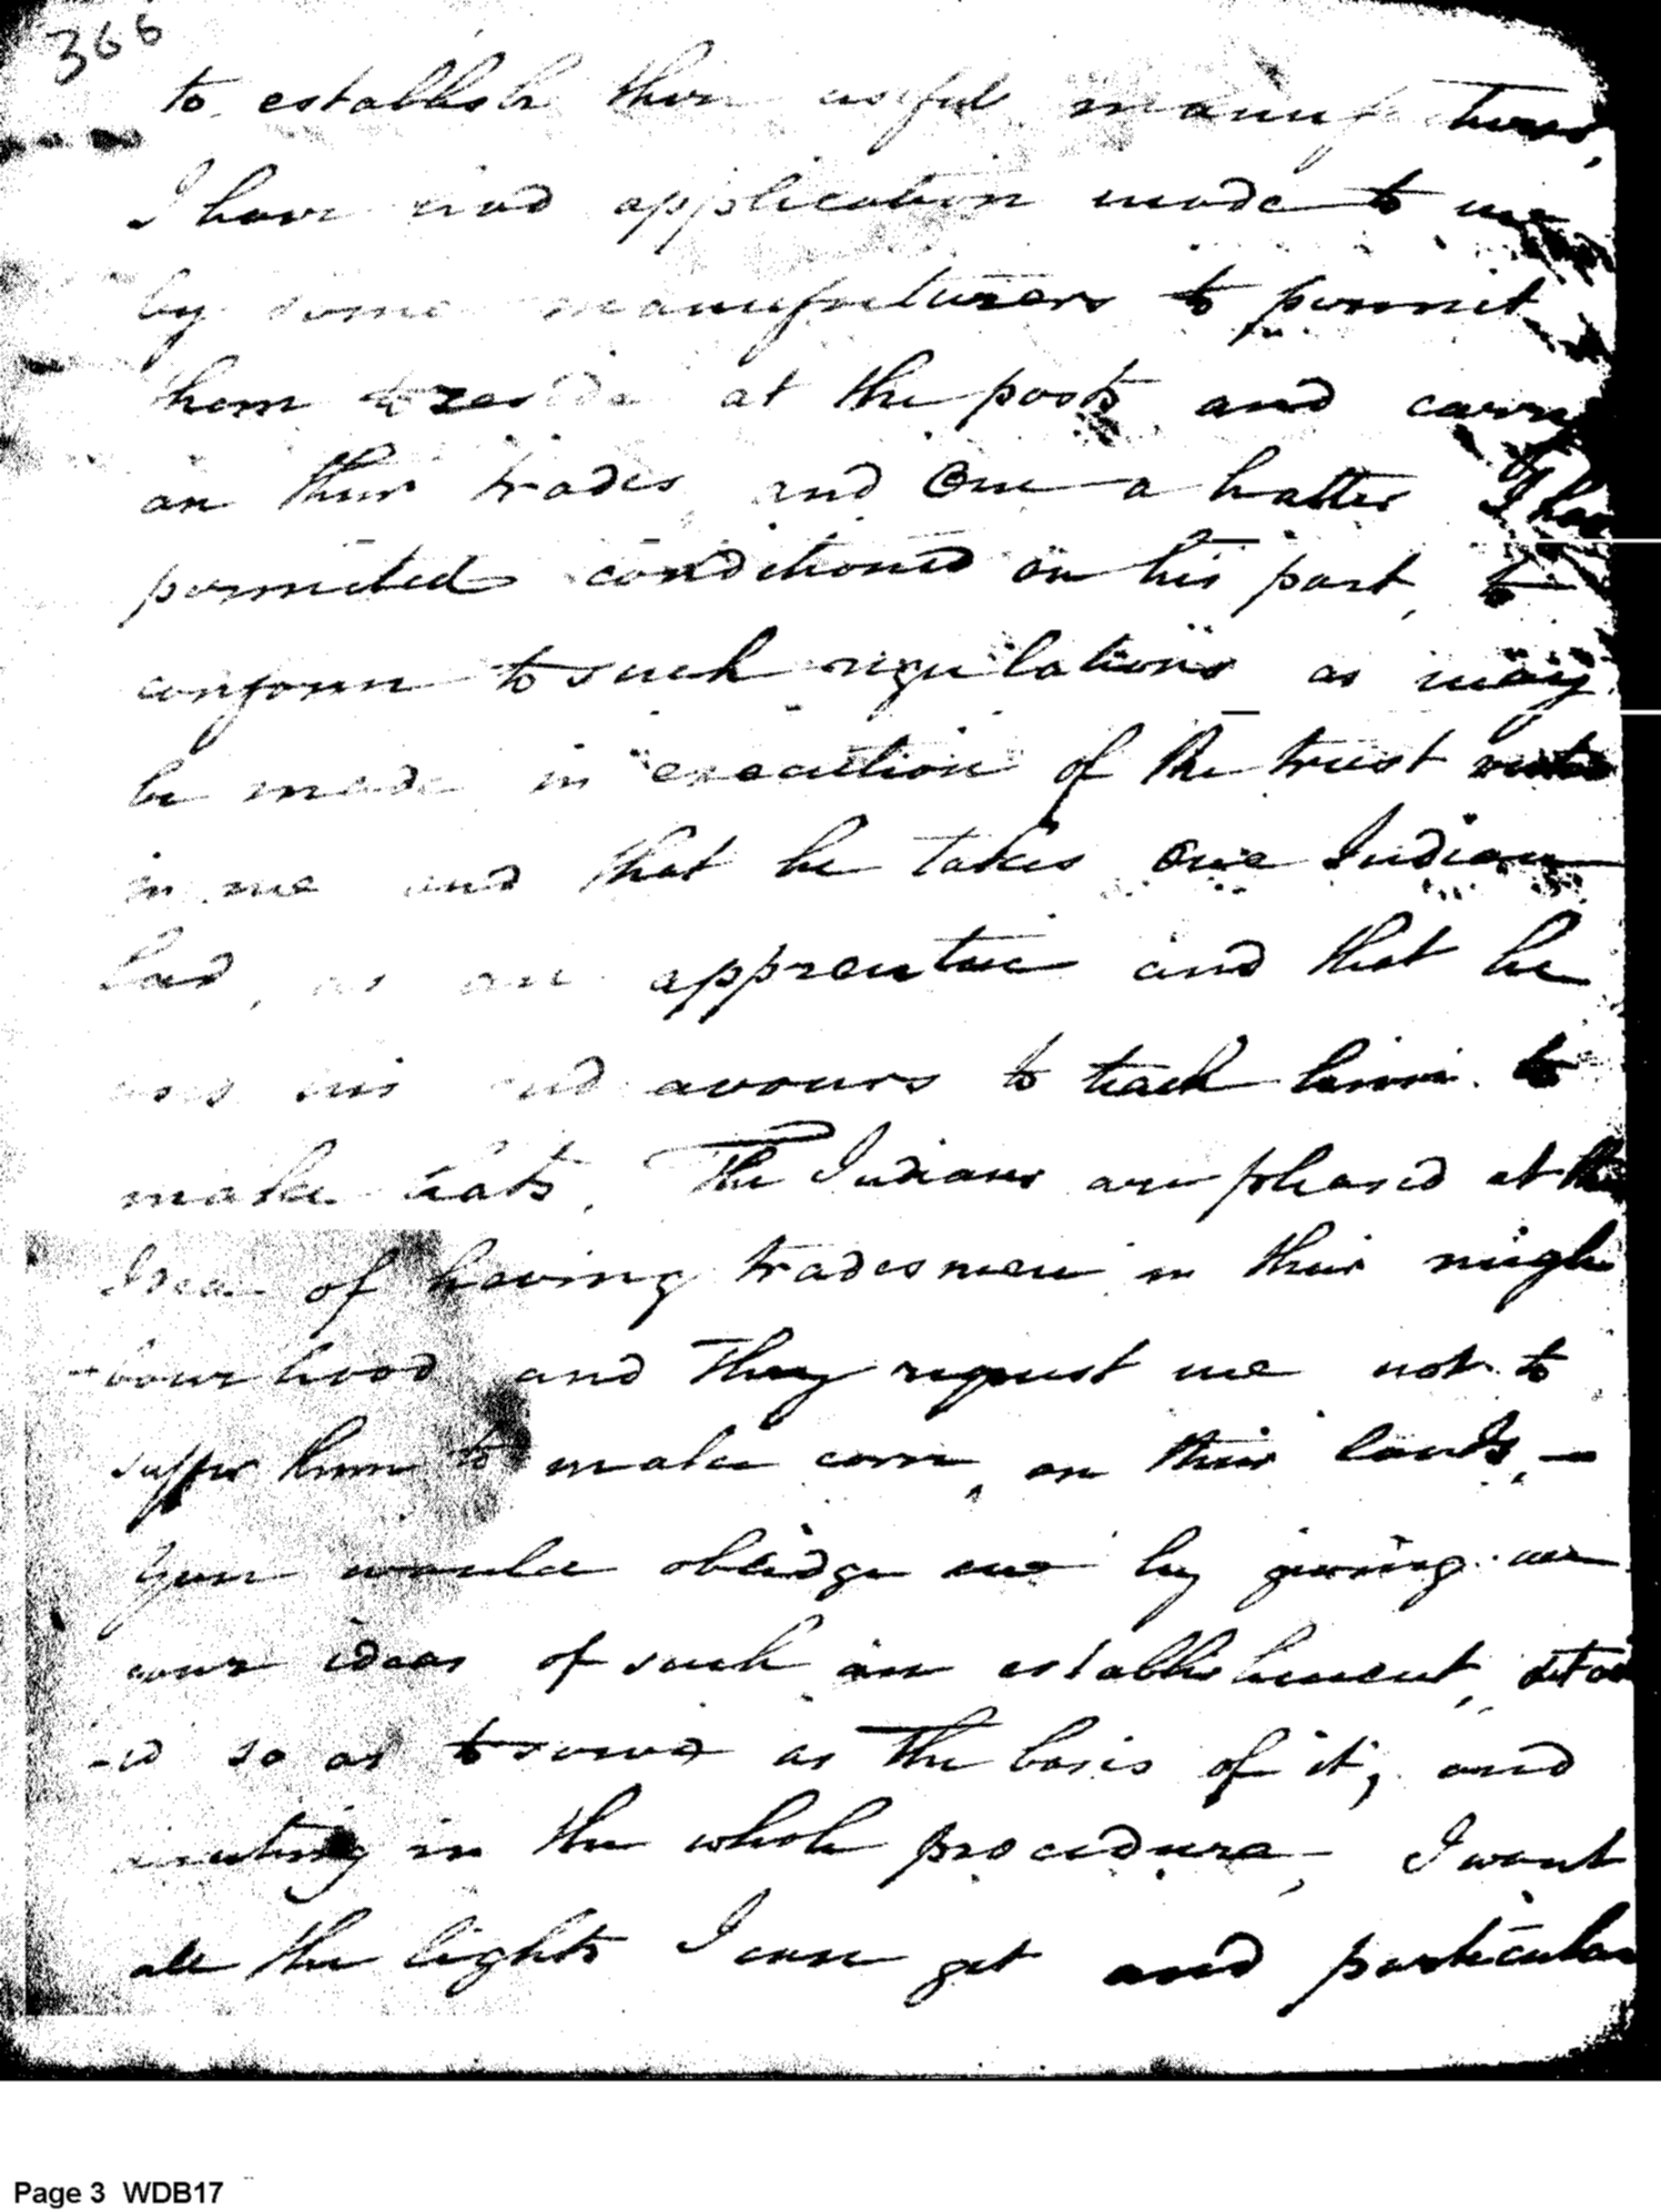 366
to establish their useful manufactures,
I have had application made to me
by some manufacturers to permit
them to reside at the posts and carry
on their trades, and One a hatter I have
permited conditioned on his part, to
conform to such regulations as may
be made in execution of the trust
in me and that he takes One Indian
lad, as an apprentice and that he
uses his endavours to teach him to
make hats. The Indians are pleased at the
Idea of having tradesmen in their neigh
-bour hood and They request me not to
suffer them to make corn, on their lands, -
You would oblidge me by giving me
your ideas of such an establishment,
-ed so as to serve as the basis of it, and
in the whole procedure, I want
all the lights I can get and particular
Page 3 WDB17